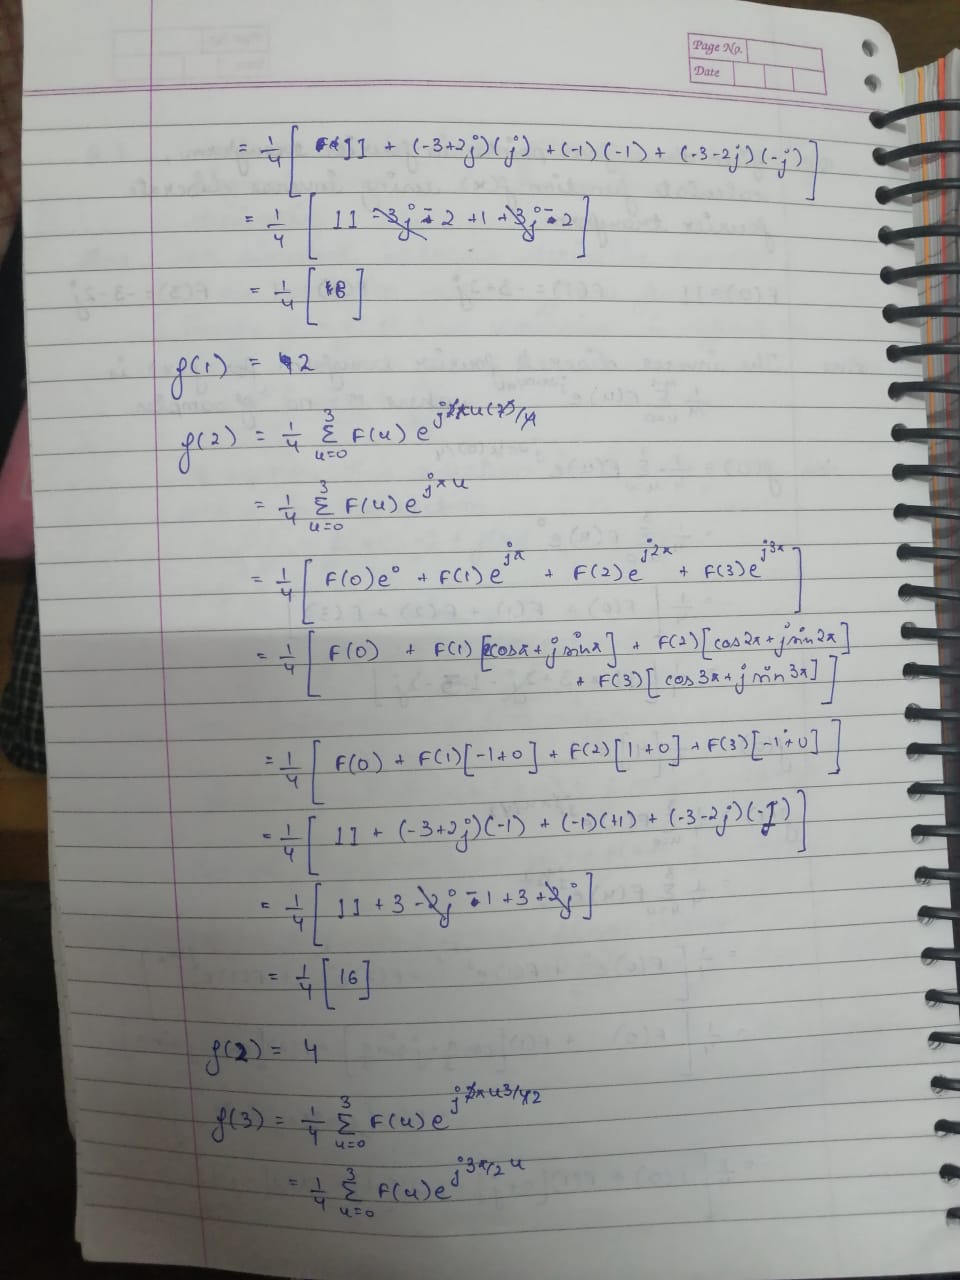 Page No.
Date
= 1/4 [ 11 + (-3+2j)(j) + (-1)(-1) + (-3-2j)(-j) ]
= 1/4 [ 11 -3j - 2 + 1 + 3j - 2 ]
= 1/4 [ 8 ]
f(1) = 2
f(2) = 1/4 Σ_{u=0}^{3} F(u) e^{j2πu(2)/4}
= 1/4 Σ_{u=0}^{3} F(u) e^{jπu}
= 1/4 [ F(0)e^0 + F(1)e^{jπ} + F(2)e^{j2π} + F(3)e^{j3π} ]
= 1/4 [ F(0) + F(1) [cosπ + j sinπ] + F(2) [cos2π + j sin2π]
+ F(3) [cos3π + j sin3π] ]
= 1/4 [ F(0) + F(1)[-1+0] + F(2)[1+0] + F(3)[-1+0] ]
= 1/4 [ 11 + (-3+2j)(-1) + (-1)(+1) + (-3-2j)(-1) ]
= 1/4 [ 11 + 3 - 2j - 1 + 3 + 2j ]
= 1/4 [16]
f(2) = 4
f(3) = 1/4 Σ_{u=0}^{3} F(u) e^{j2πu3/4}
= 1/4 Σ_{u=0}^{3} F(u) e^{j3π/2 u}